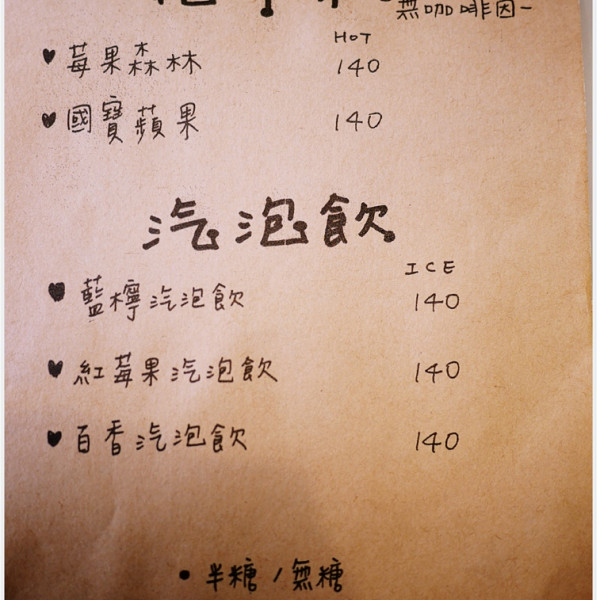 無咖啡因-
HOT
♥ 莓果森林 140
♥ 國寶蘋果 140
汽泡飲
ICE
♥ 藍檸汽泡飲 140
♥ 紅莓果汽泡飲 140
♥ 百香汽泡飲 140
• 半糖 / 無糖